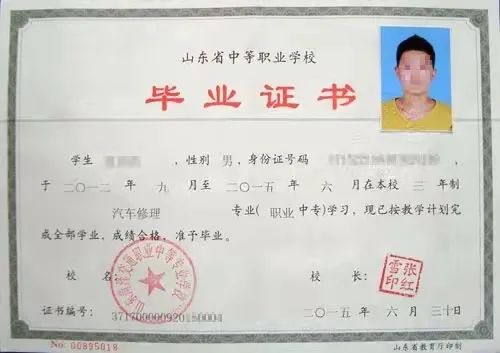 山东省中等职业学校
毕业证书
学生 ,性别 男,身份证号码
于二〇一二年 九 月至二〇一五年 六 月在本校 三 年制
汽车修理 专业( 职业 中专)学习,现已按教学计划完
成全部学业,成绩合格,准予毕业。
校 名: 校 长:
张红雪印
证书编号: 371700000920150004 二〇一五 年 六 月 三十 日
No. 00895018 山东省教育厅印制